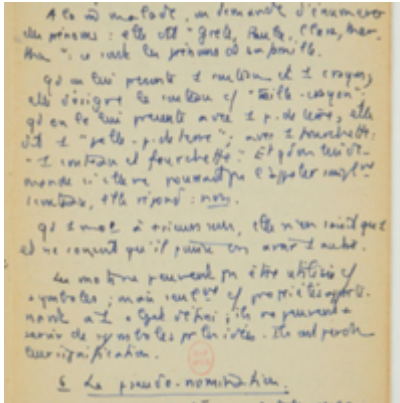 A la même malade, on demande d'énumérer
des prénoms : elle dit "Grete, Paula, Clara, Mar-
tha" : ce sont les prénoms de sa famille.
Qd on lui présente 1 couteau et 1 crayon,
elle désigne le couteau c/ "taille-crayon",
qd on le lui présente avec 1 p. de terre, elle
dit 1 "pelle-p. de terre" ; avec 1 fourchette :
"1 couteau et fourchette." Et qd on lui de-
mande si elle ne pourrait pas l'appeler
couteau, elle répond : non.
Qd 1 mot a sens, elle n'en connaît que 1
et ne conçoit qu'il puisse en avoir 1 autre.
Les mots ne peuvent être utilisés c/
symboles, mais c/ propriétés apparte-
nant à 1 objet défini ; ils ne peuvent
servir de symboles pr les idées. Ils ont perdu
leur signification.
La pseudo-nomination.